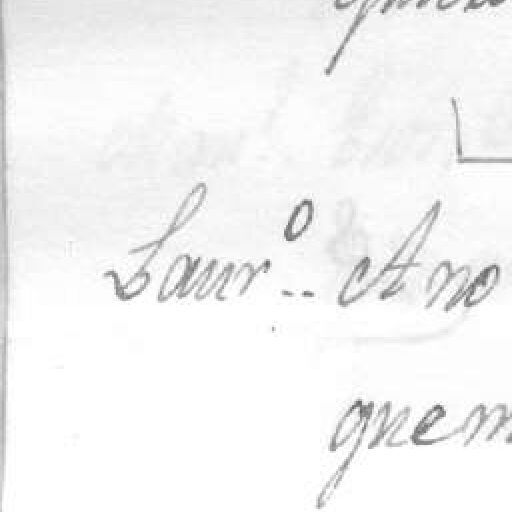 Laur.º -- Ano
gnem